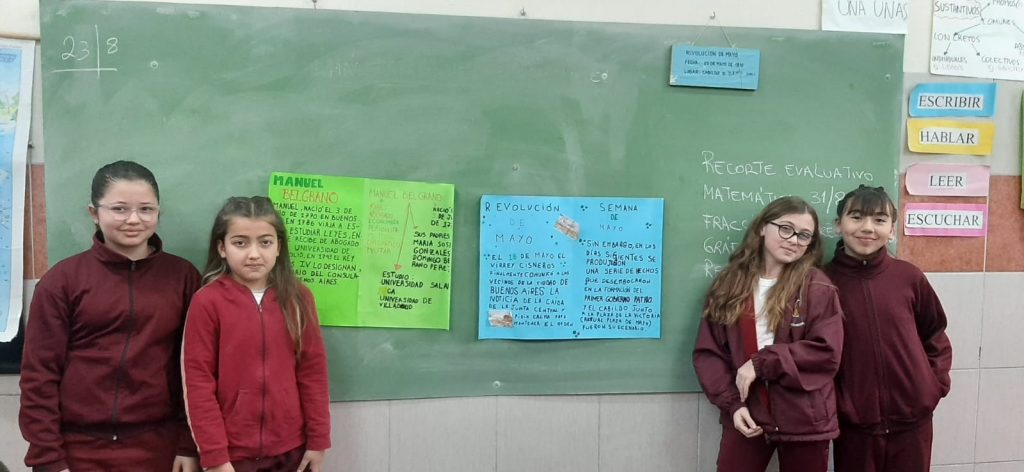 23 | 8
MANUEL
BELGRANO
MANUEL, NACIÓ EL 3 DE
DE 1770 EN BUENOS
EN 1786 VIAJA A ES-
ESTUDIAR LEYES, EN
RECIBE DE ABOGADO
UNIVERSIDAD DE
EN 1793 EL REY
IV LO DESIGNAN,
DEL CONSULA-
AIRES.
MANUEL BELGRANO
ECONOMISTA
PERIODISTA
MILITAR
NACIÓ
DE
SUS PADRES
MARIA
GONZALES
DOMINGO
ESTUDIO
UNIVERSIDAD
UNIVERSIDAD DE
VALLADOLID
REVOLUCIÓN
DE
MAYO
EL 18 DE MAYO EL
VIRREY CISNEROS
FINALMENTE COMUNICA A LOS
VECINOS DE LA CIUDAD DE
BUENOS AIRES LA
NOTICIA DE LA CAIDA
DE LA JUNTA CENTRAL Y
PIDIO CALMA PARA
MANTENER EL ORDEN
SEMANA
DE
MAYO
SIN EMBARGO, EN LOS
DÍAS SIGUIENTES SE
PRODUJERON
UNA SERIE DE HECHOS
QUE DESEMBOCARON
EN LA FORMACIÓN DEL
PRIMER GOBIERNO PATRIO
Y EL CABILDO JUNTO
A LA PLAZA DE LA VICTORIA
(ACTUAL PLAZA DE MAYO)
FUERON SU ESCENARIO
REVOLUCIÓN DE MAYO
FECHA: DE MAYO DE 1810
LUGAR: CABILDO
RECORTE EVALUATIVO
MATEMÁTI 31/8
FRAC
UNA UNAS
SUSTANTIVOS
COMUNES
CONCRETOS
INDIVIDUALES
COLECTIVOS
ESCRIBIR
HABLAR
LEER
ESCUCHAR